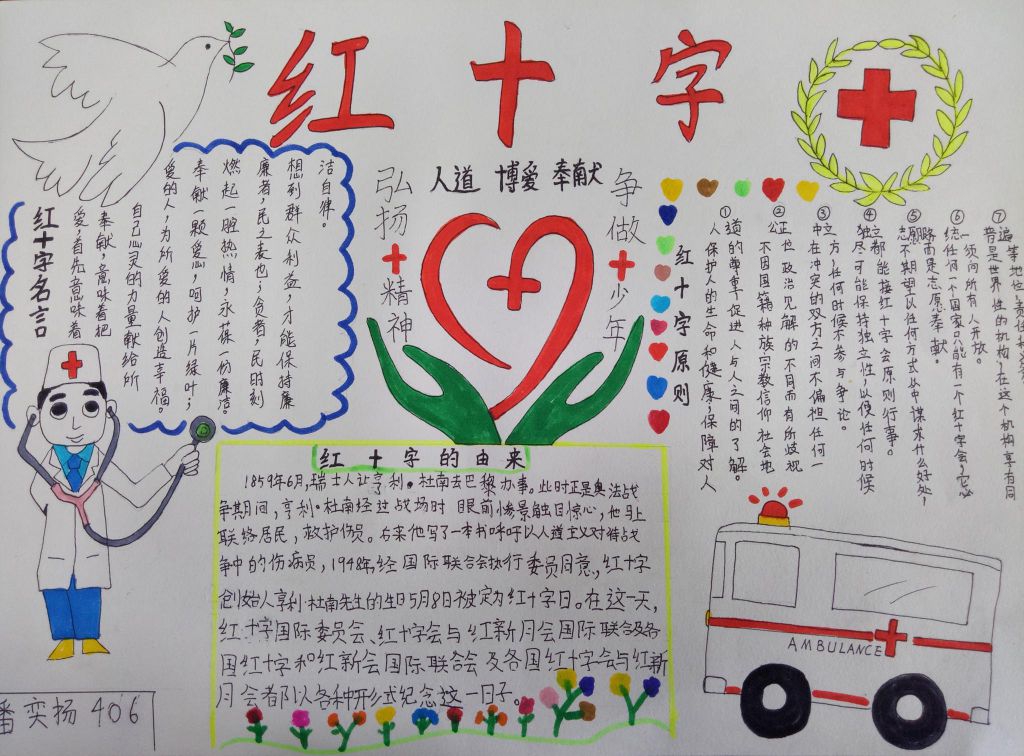 红十字
人道 博爱 奉献
弘扬十精神
争做十少年
红十字名言
爱,首先意味着
奉献,意味着把
自己心灵的力量献给所
爱的人,为所爱的人创造幸福。
奉献一颗爱心,呵护一片绿叶;
燃起一腔热情,永葆一份廉洁。
廉者,民之表也;贪者,民的刻
想到群众利益,才能保持廉
洁自律。
红十字原则
①
人保护人的生命和健康;保障对
类的尊重促进人与人之间的了解。
②
不因国籍种族宗教信仰社会地
公正也政治见解的不同而有所歧视
③
中在冲突的双方之间不偏担任何一
立方,任何时候不参与争论。
④
独尽可能保持独立性,以便任何时候
立都能按红十字会原则行事。
⑤
志不期望以任何方式从中谋求什么好处,
愿而是志愿奉献。
⑥
统任何一个国家只能有一个红十字会,它必
一须向所有人开放。
⑦
普是世界性的机构,在这个机构享有同
遍等地位,责任和义
红十字的由来
1859年6月,瑞士人让亨利。杜南去巴黎办事。此时正是奥法战
争期间,亨利。杜南经过战场时 眼前情景触目惊心,他马上
联络居民,救护伤员。右来他写了一本书呼吁以人道主义对待战
争中的伤病员,1948年,经国际联合会执行委员同意,红十字
创始人亨利·杜南先生的生日5月8日被定为红十字日。在这一天,
红十字国际委员会、红十字会与红新月会国际联合及各
国红十字和红新会国际联合会及各国红十字会与红新
月会者都以各种形式纪念这一日子。
AMBULANCE
潘奕扬 406